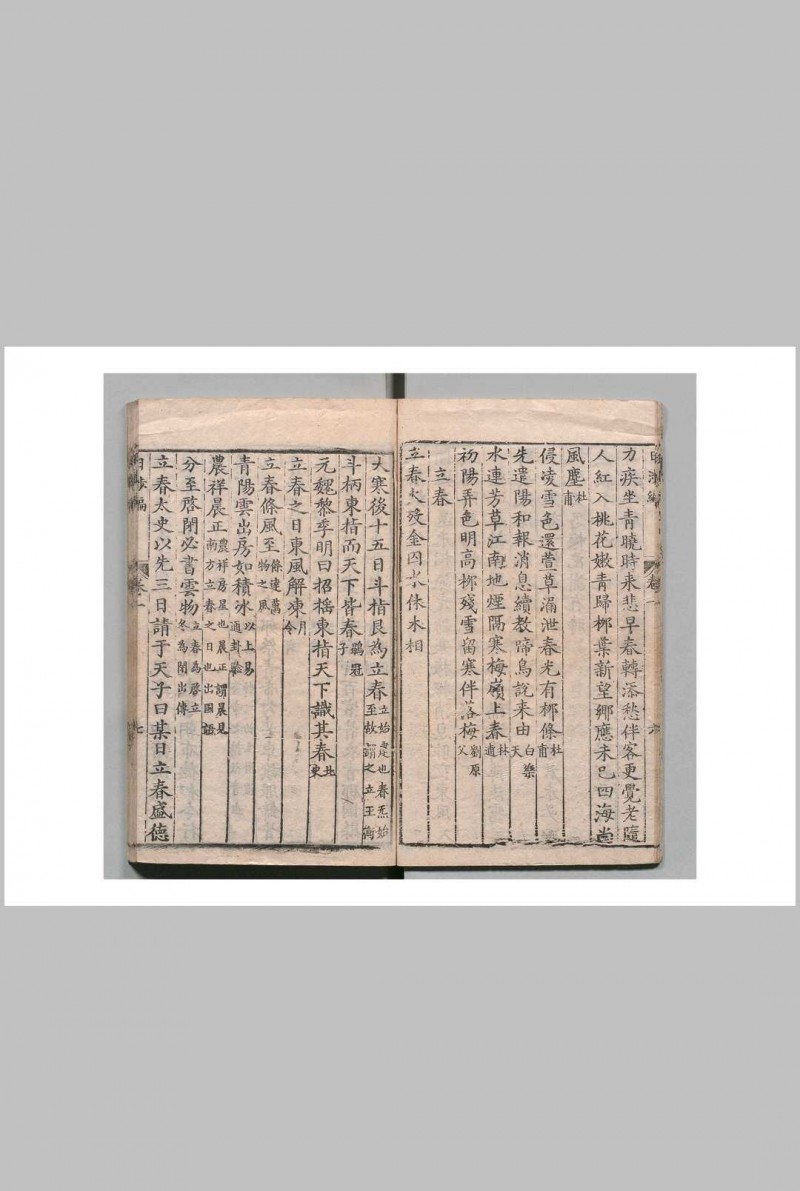 力疾坐青曉時来悲早春轉添愁伴客更覺老隨
人紅入桃花嫩青歸柳葉新望鄉應未已四海尚
風塵杜甫
侵凌雪色還萱草漏泄春光有柳條杜甫
先遣陽和報消息續教啼鳥說来由白樂天
水連芳草江南地煙隔寒梅嶺上春杜逈
初陽弄色明高柳殘雪留寒伴落梅劉原父
立春
立春火殁金囚水休木相
大寒後十五日斗指艮為立春立始建也春炁始至故謂之立王衡
斗柄東指而天下皆春鶡冠子
元魏黎季明曰招摇東指天下識其春北史
立春之日東風解凍月令
立春條風至條達萬物之風
青陽雲出房如積冰以上易通卦驗
農祥晨正農祥房星也晨正謂晨見南方立春之日也出國語
分至啓閉必書雲物立春為啓立冬為閉出傳
立春太史以先三日請于天子曰某日立春盛德
卷一
七